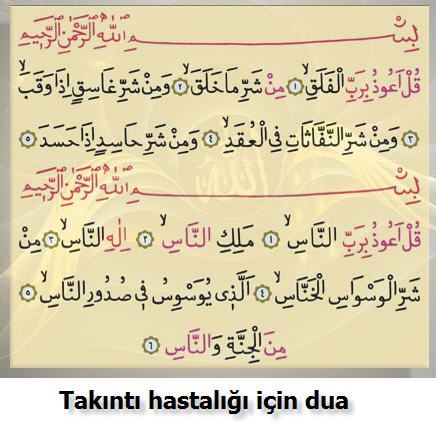 بِسْمِ اللّٰهِ الرَّحْمٰنِ الرَّحِيمِ
قُلْ اَعُوذُ بِرَبِّ الْفَلَقِۙ ﴿١﴾ مِنْ شَرِّ مَا خَلَقَۙ ﴿٢﴾ وَمِنْ شَرِّ غَاسِقٍ اِذَا وَقَبَۙ
﴿٣﴾ وَمِنْ شَرِّ النَّفَّاثَاتِ فِي الْعُقَدِۙ ﴿٤﴾ وَمِنْ شَرِّ حَاسِدٍ اِذَا حَسَدَ ﴿٥﴾
بِسْمِ اللّٰهِ الرَّحْمٰنِ الرَّحِيمِ
قُلْ اَعُوذُ بِرَبِّ النَّاسِۙ ﴿١﴾ مَلِكِ النَّاسِۙ ﴿٢﴾ اِلٰهِ النَّاسِۙ ﴿٣﴾ مِنْ
شَرِّ الْوَسْوَاسِ الْخَنَّاسِۙ ﴿٤﴾ اَلَّذِي يُوَسْوِسُ فِي صُدُورِ النَّاسِۙ ﴿٥﴾
مِنَ الْجِنَّةِ وَالنَّاسِ ﴿٦﴾
Takıntı hastalığı için dua